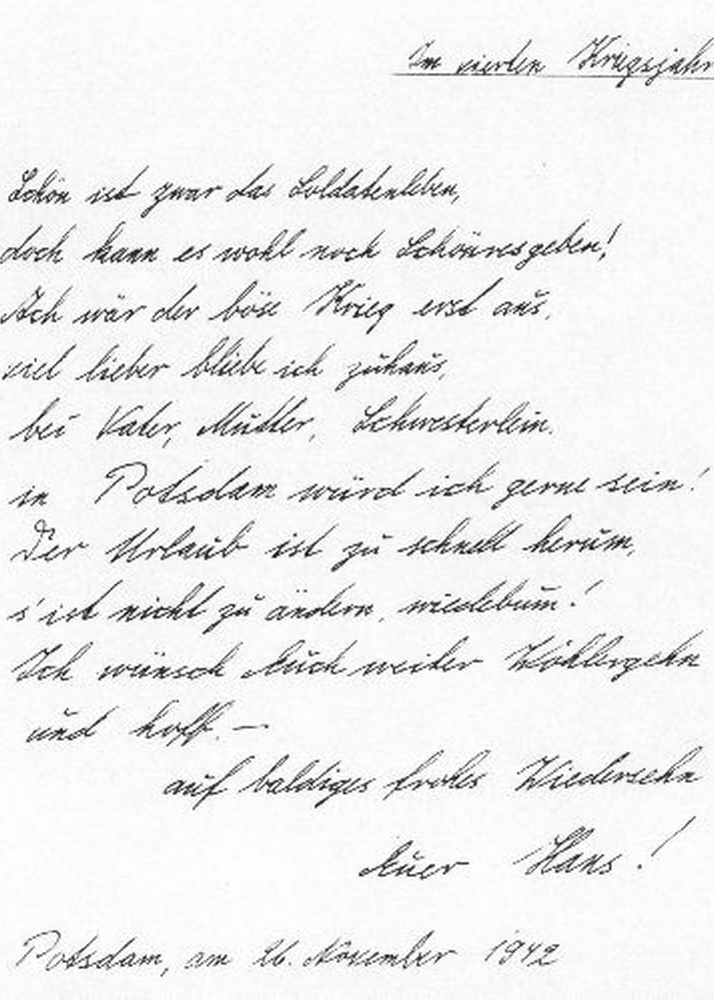 Im vierten Kriegsjahr
Schön ist zwar das Soldatenleben,
doch kann es wohl noch Schönres geben!
Ach wär der böse Krieg erst aus,
viel lieber bliebe ich zuhaus,
bei Vater, Mutter, Schwesterlein.
in Potsdam würd ich gerne sein!
Der Urlaub ist zu schnell herum,
s'ist nicht zu ändern, wiedebum!
Ich wünsch Euch weiter Wohlergehn
und hoff. —
auf baldiges frohes Wiedersehn
Euer Hans!
Potsdam, am 26. November 1942